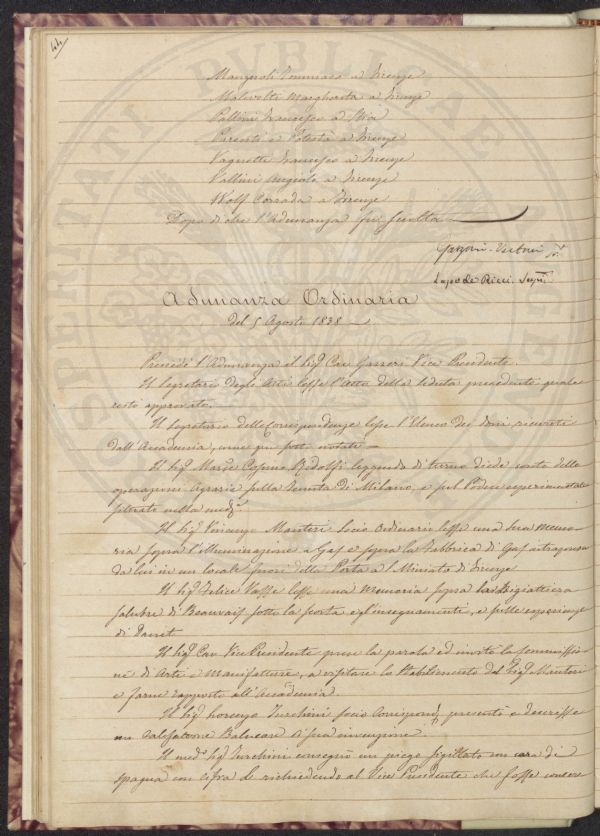 44
Mangnoli Tommaso a Firenze
Malevolti Margherita a Firenze
Pallini Francesco a Stia
Parenti a Firenze
Francesco a Firenze
Pallini Angiolo a Firenze
Wolf Corrado a Firenze
Dopo di che l'Adunanza fu sciolta
Gazzeri
Lapo de Ricci. Segr.
Adunanza Ordinaria
del 5 Agosto 1838
Presiedé l'Adunanza il Sig. Cav Gazzeri Vice Presidente
Il Segretario degli Atti lesse l'Atto della seduta precedente quale
restò approvato.
Il Segretario delle Corrispondenze lesse l'Elenco dei doni ricevuti
dall'Accademia, come qui sotto notati
Il Sig. March. Cosimo Ridolfi leggendo di turno diede conto delle
operazioni Agrarie sulla Tenuta di Meleto, e sul Podere esperimentale
situato nella med.
Il Sig. Vincenzo Manteri Socio Ordinario lesse una sua memo-
ria sopra l'illuminazione a Gas e sopra la fabbrica di Gas intrapresa
da lui in un locale fuori della Porta a S. Miniato di Firenze
Il Sig. Felice Vasse lesse una memoria sopra la
salubre di Beauvais sotto la scorta e gl'insegnamenti, e sulle esperienze
di Darcet
Il Sig. Cav Vice Presidente prese la parola ed invitò la Commissio-
ne di Arti e Manifatture, a visitare lo Stabilimento del Sig. Manteri
e farne rapporto all'Accademia.
Il Sig. Lorenzo Turchini socio Corrispond. presentò e descrisse
un Calefatore Balneario di sua invenzione.
Il med. Sig. Turchini consegnò un piego sigillato con cera di
Spagna con cifra L richiedendo al Vice Presidente che fosse conser